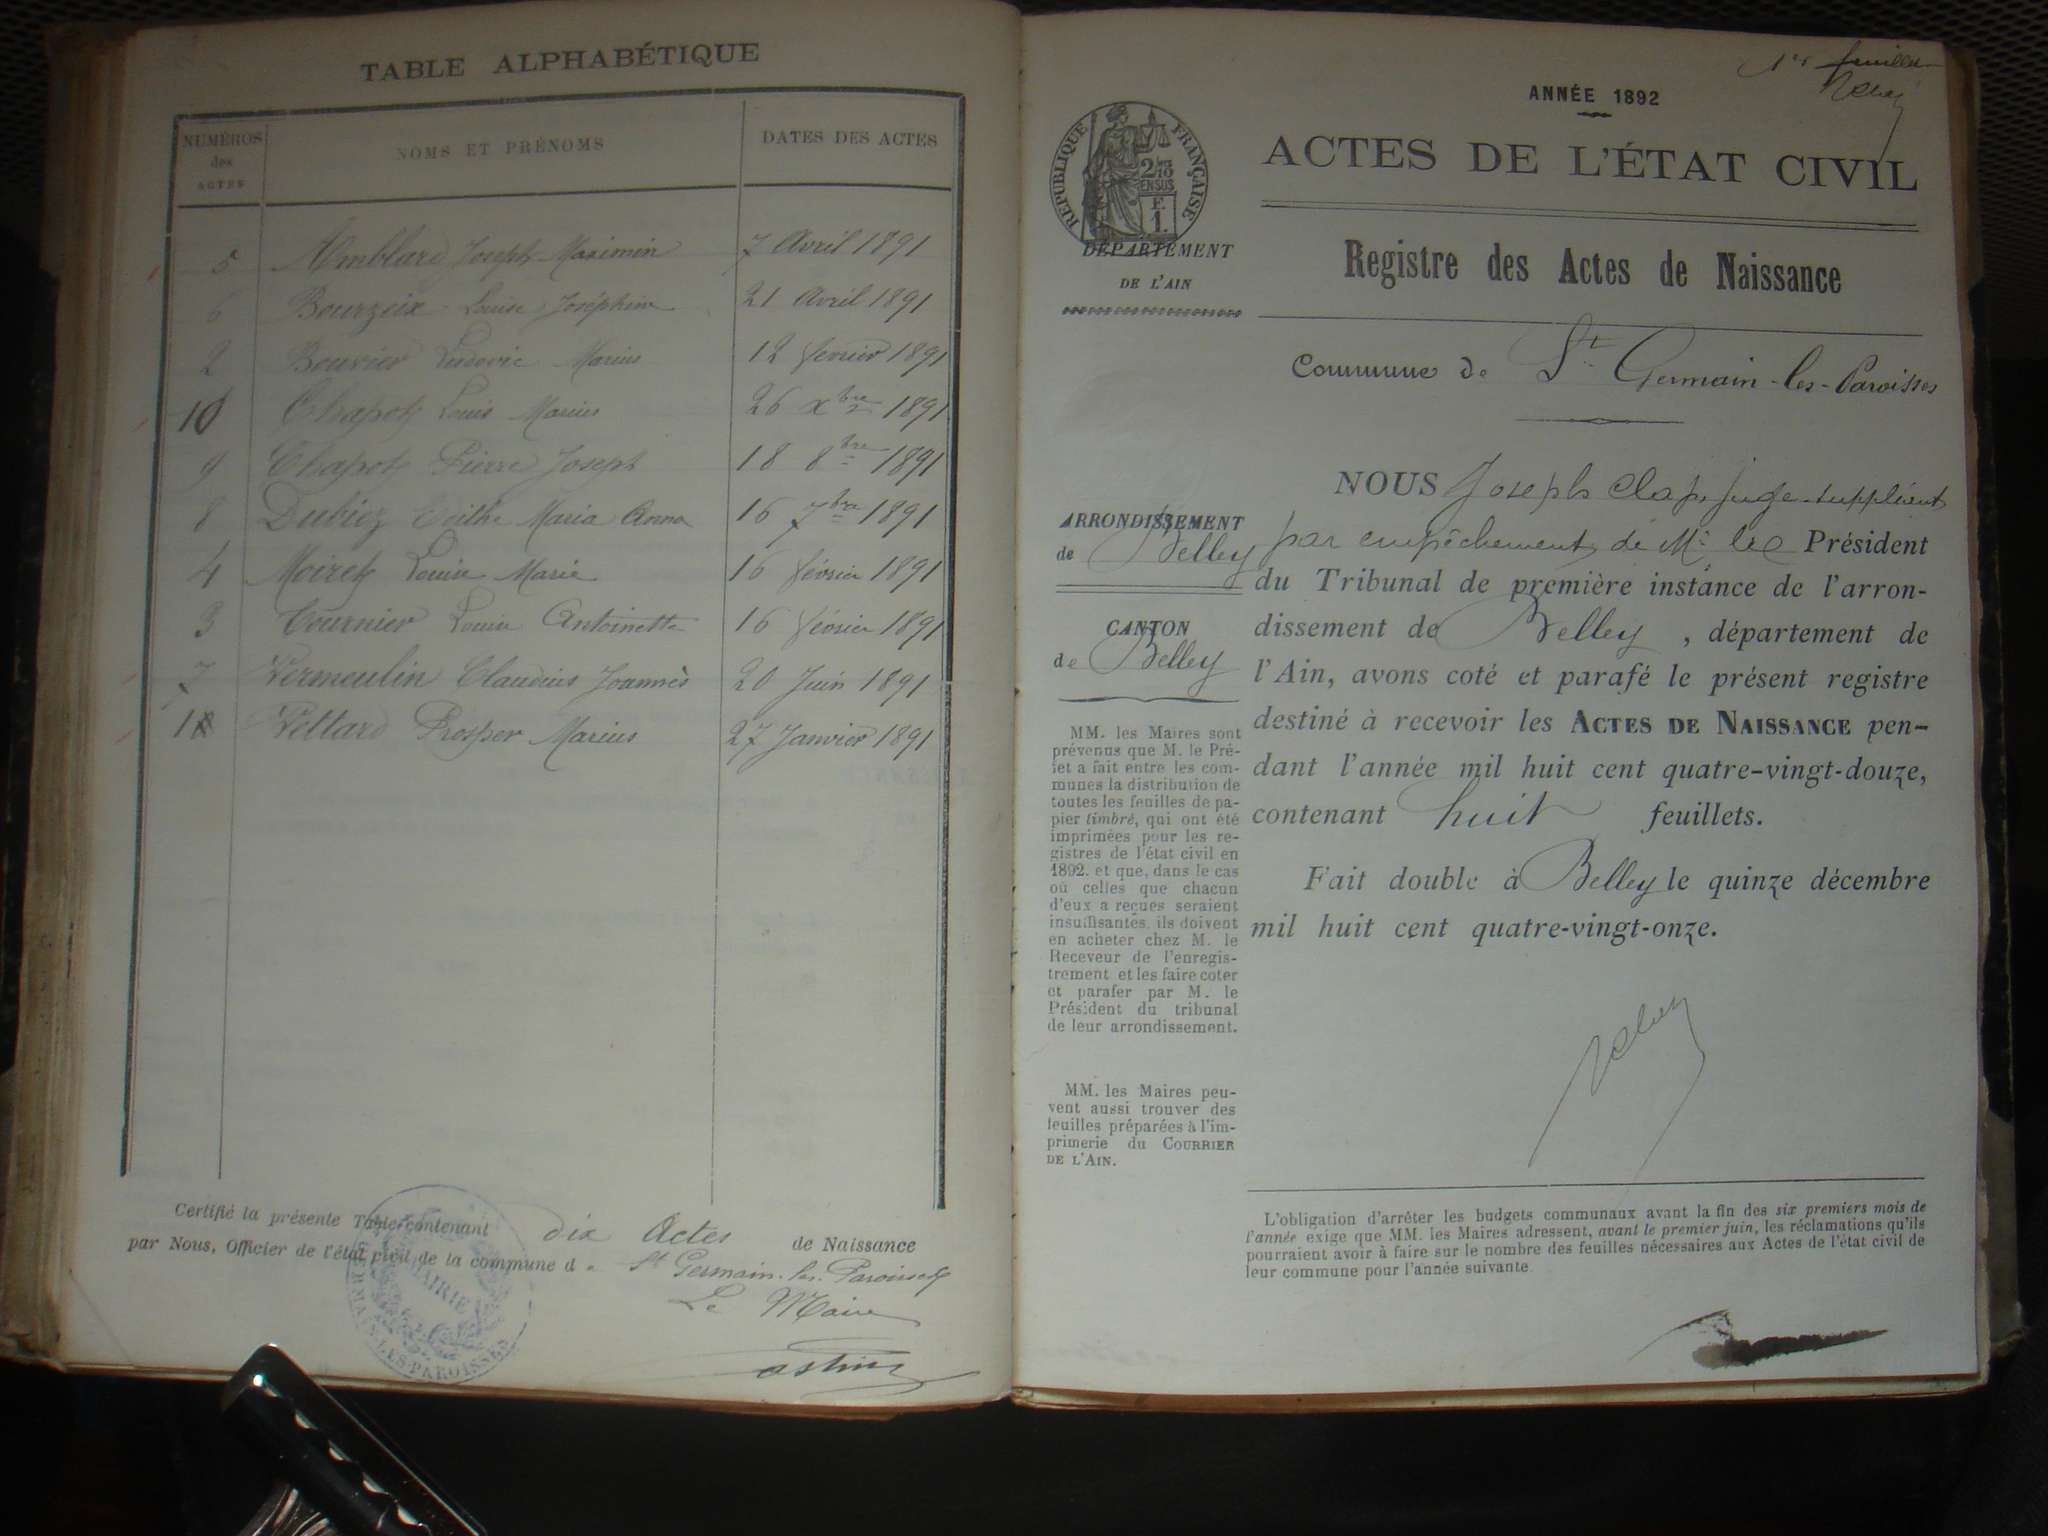 TABLE ALPHABÉTIQUE
NUMÉROS des ACTES NOMS ET PRÉNOMS DATES DES ACTES
5 Amblard Joseph Maximin 7 Avril 1891
6 Bourzeix Louise Joséphine 21 Avril 1891
2 Bouvier Ludovic Marius 12 février 1891
10 Chapot Louis Marius 26 xbre 1891
9 Chapot Pierre Joseph 18 8bre 1891
8 Dubiez Maria Anna 16 7bre 1891
4 Moiret Louise Marie 16 février 1891
3 Tournier Louise Antoinette 16 février 1891
7 Vermeulin Claudius Joannès 20 Juin 1891
1 Vettard Prosper Marius 27 Janvier 1891
Certifié la présente Table contenant dix Actes de Naissance
par Nous, Officier de l'état civil de la commune de St Germain-les-Paroisses
Le Maire
MAIRIE
ST GERMAIN-LES-PAROISSES
1er feuillet
ANNÉE 1892
RÉPUBLIQUE FRANÇAISE
2/10 EN SUS
E.
1.
ACTES DE L'ÉTAT CIVIL
DÉPARTEMENT
DE L'AIN
Registre des Actes de Naissance
Commune de St Germain-les-Paroisses
ARRONDISSEMENT
de Belley
CANTON
de Belley
NOUS Joseph Clap, juge-suppléant
par empêchement de Mr le Président
du Tribunal de première instance de l'arron-
dissement de Belley, département de
l'Ain, avons coté et parafé le présent registre
destiné à recevoir les ACTES DE NAISSANCE pen-
dant l'année mil huit cent quatre-vingt-douze,
contenant huit feuillets.
Fait double à Belley le quinze décembre
mil huit cent quatre-vingt-onze.
MM. les Maires sont
prévenus que M. le Pré-
fet a fait entre les com-
munes la distribution de
toutes les feuilles de pa-
pier timbré, qui ont été
imprimées pour les re-
gistres de l'état civil en
1892, et que, dans le cas
où celles que chacun
d'eux a reçues seraient
insuffisantes, ils doivent
en acheter chez M. le
Receveur de l'enregis-
trement et les faire coter
et parafer par M. le
Président du tribunal
de leur arrondissement.
MM. les Maires peu-
vent aussi trouver des
feuilles préparées à l'im-
primerie du COURRIER
DE L'AIN.
L'obligation d'arrêter les budgets communaux avant la fin des six premiers mois de
l'année exige que MM. les Maires adressent, avant le premier juin, les réclamations qu'ils
pourraient avoir à faire sur le nombre des feuilles nécessaires aux Actes de l'état civil de
leur commune pour l'année suivante.